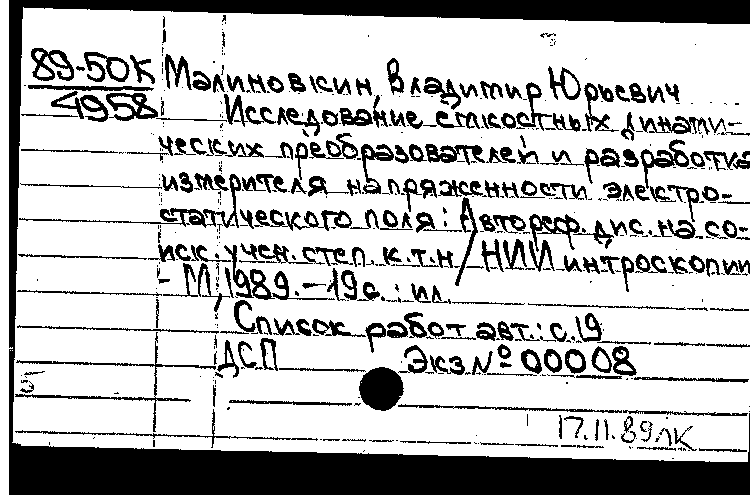 89-50К Малиновкин, Владимир Юрьевич
4958 Исследование емкостных динами-
ческих преобразователей и разработка
измерителя напряженности электро-
статического поля: Автореф. дис. на со-
иск. учен. степ. к.т.н / НИИ интроскопии
- М, 1989. - 19с. : ил.
Список работ авт.: с.19
ДСП Экз № 00008
5
17.11.89 ЛК